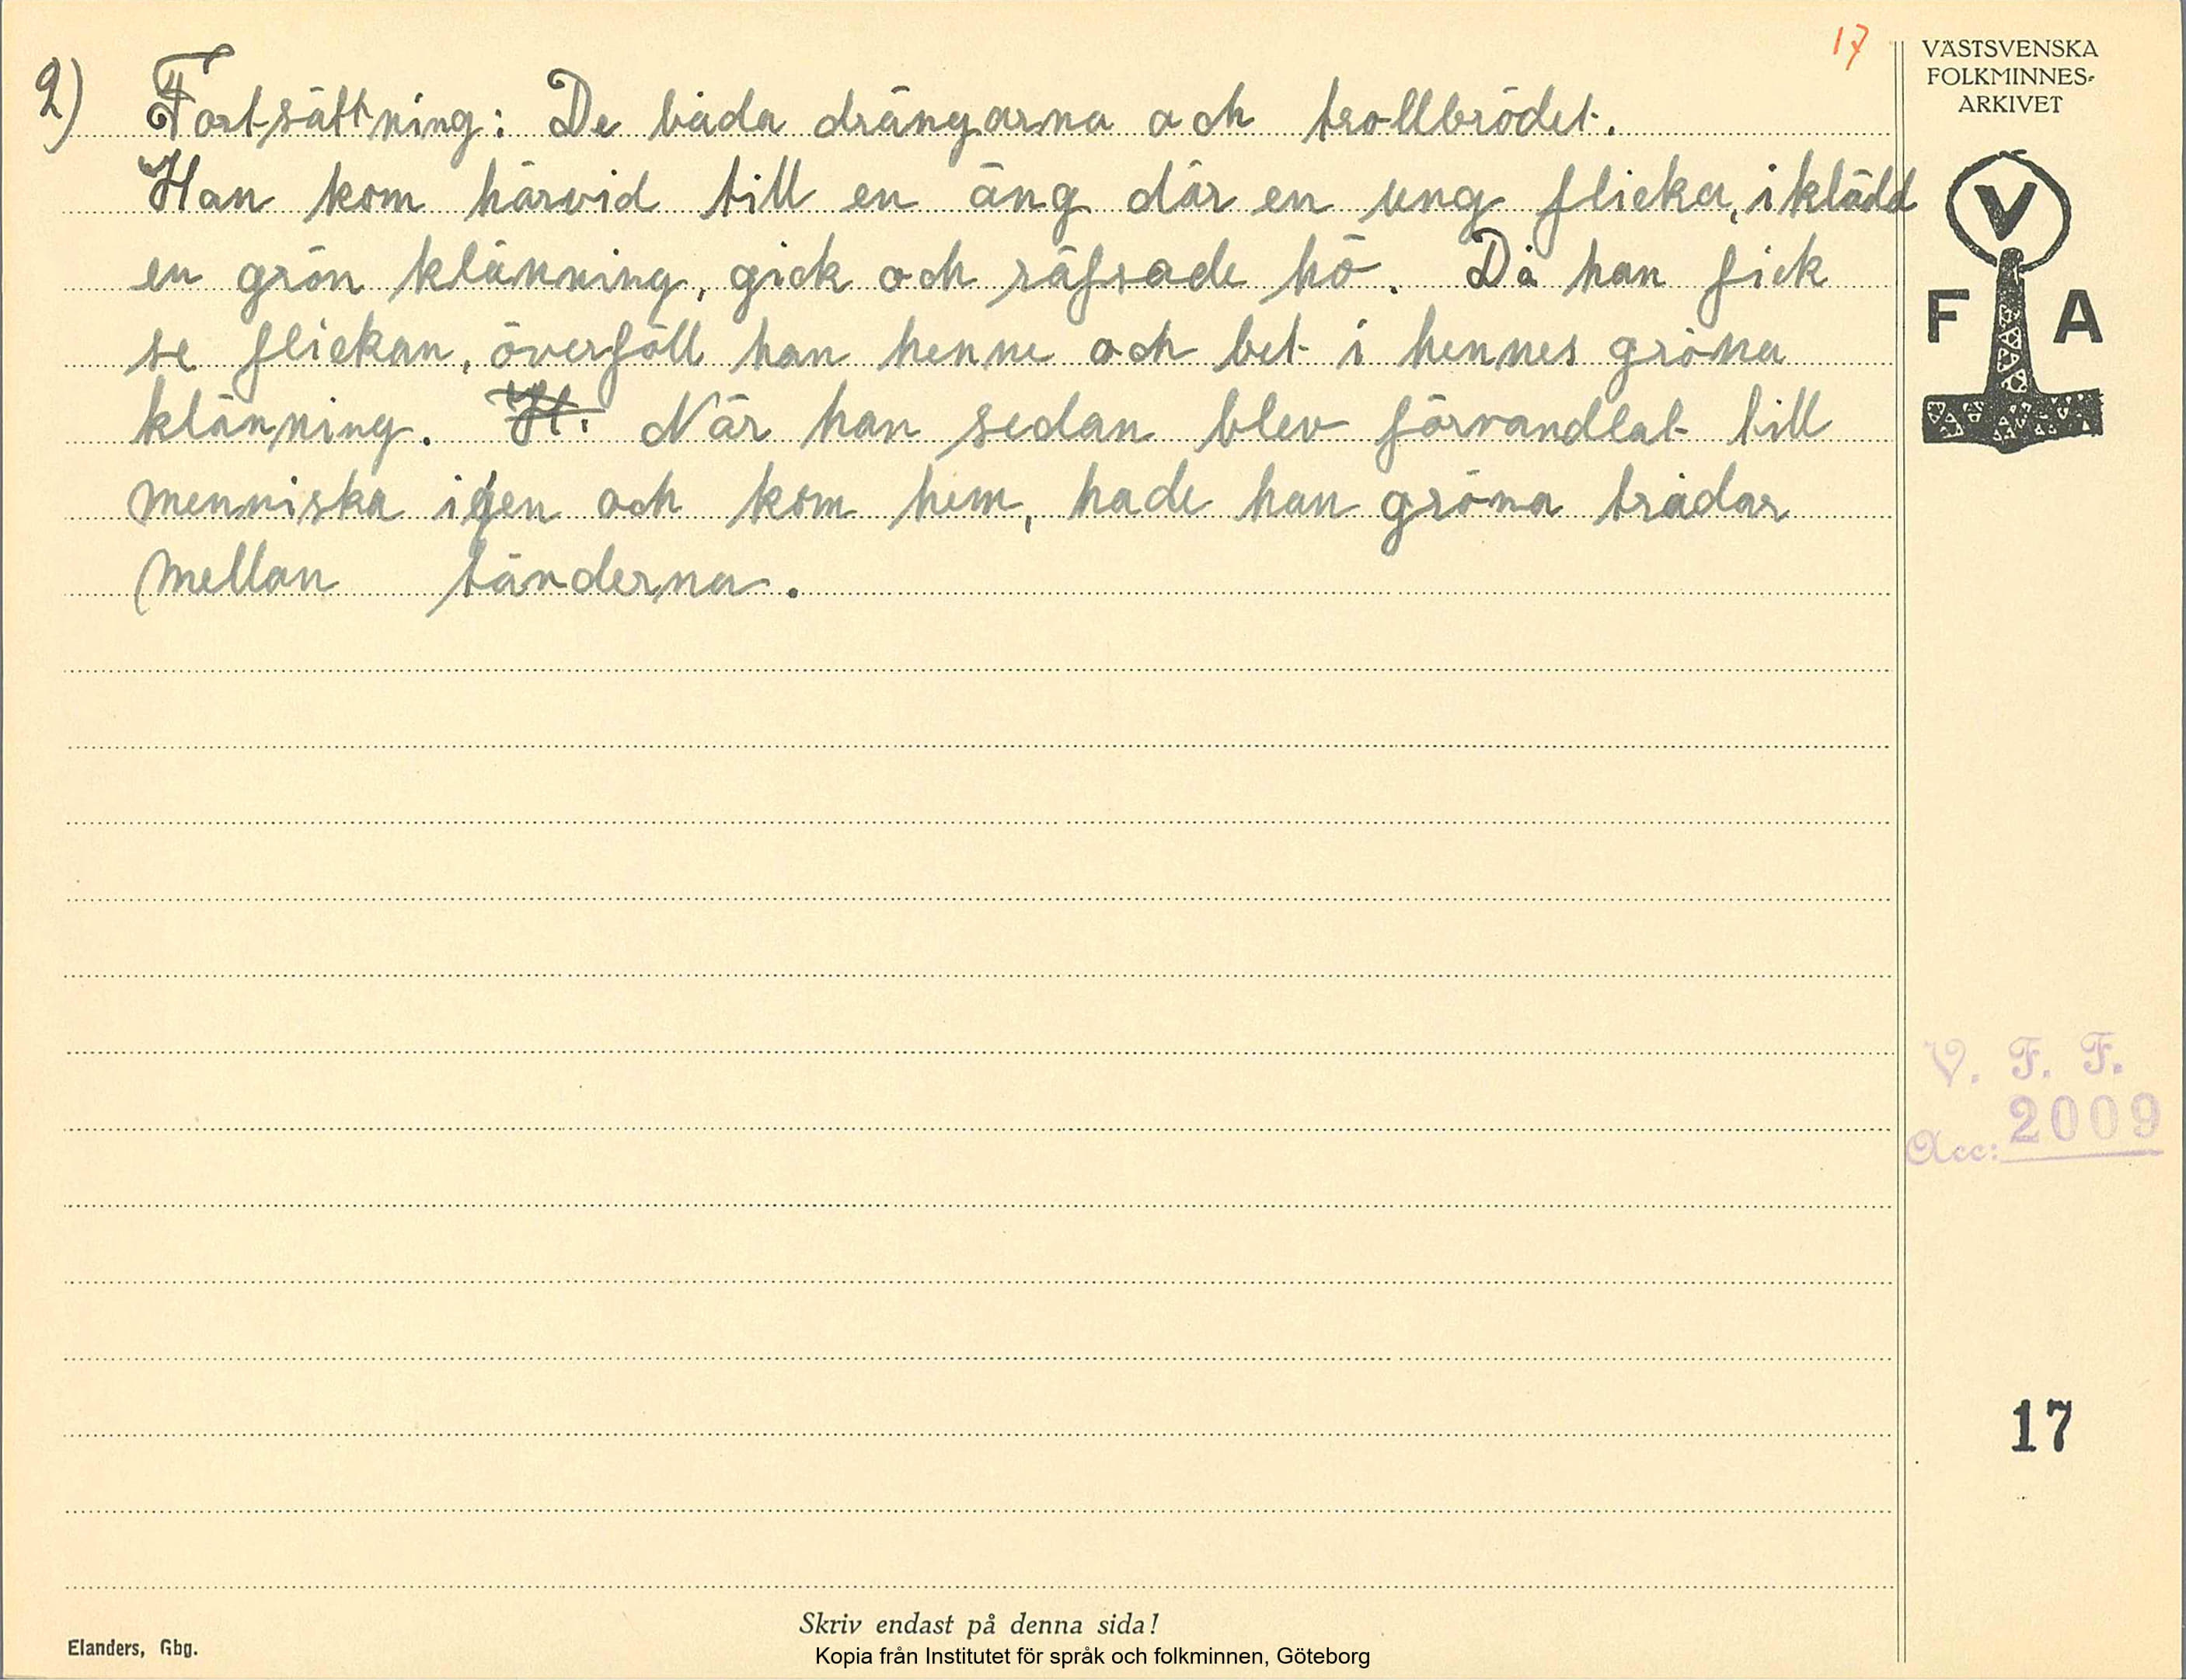 17
2) Fortsättning: De båda drängarna och trollbrödet.
Han kom härvid till en äng där en ung flicka, iklädd
en grön klänning, gick och räfsade hö. Då han fick
se flickan, överföll han henne och bet i hennes gröna
klänning. H. När han sedan blev förvandlat till
menniska igen och kom hem, hade han gröna trådar
mellan tänderna.
VÄSTSVENSKA
FOLKMINNES-
ARKIVET
V
F A
V. F. F.
Acc: 2009
17
Skriv endast på denna sida!
Elanders, Gbg.
Kopia från Institutet för språk och folkminnen, Göteborg